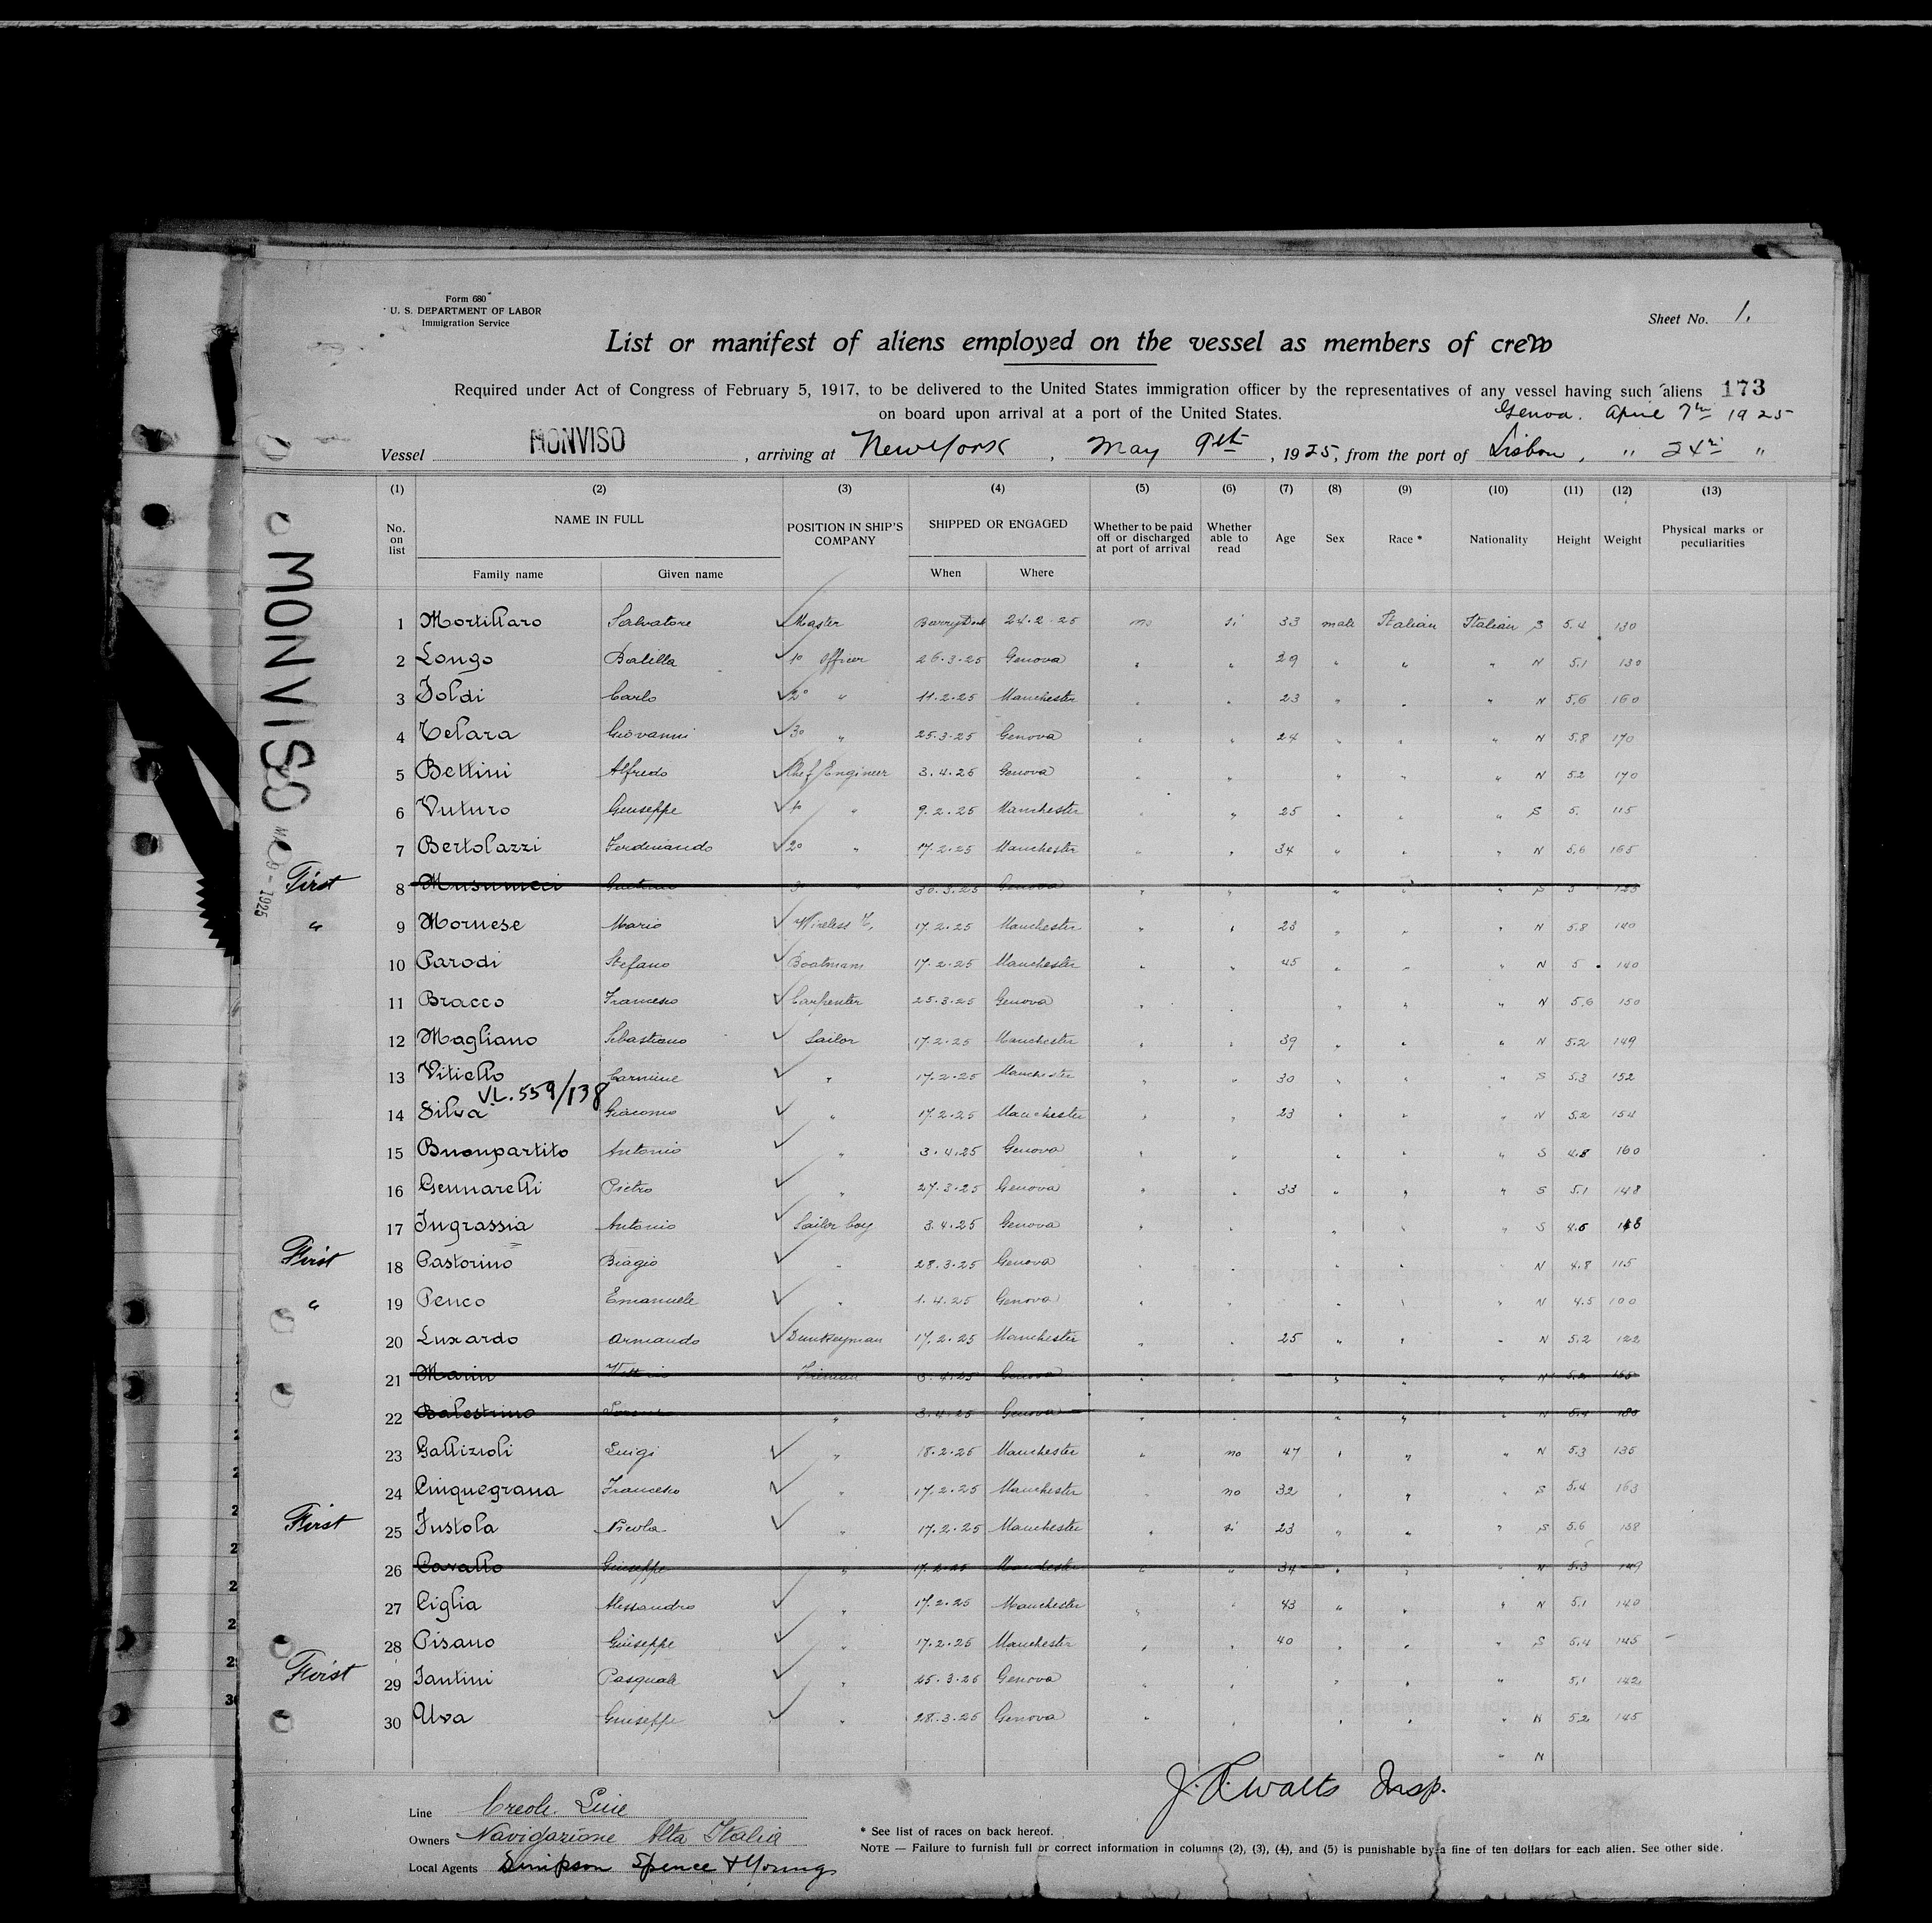 Form 680
U. S. DEPARTMENT OF LABOR
Immigration Service
Sheet No. 1.
List or manifest of aliens employed on the vessel as members of crew
Required under Act of Congress of February 5, 1917, to be delivered to the United States immigration officer by the representatives of any vessel having such aliens 173
on board upon arrival at a port of the United States.
Genova. April 7th 1925
Vessel MONVISO, arriving at New York, May 9th, 1925, from the port of Lisbon, " 24 "
MONVISO
1925
(1) (2) (3) (4) (5) (6) (7) (8) (9) (10) (11) (12) (13)
No. on list NAME IN FULL POSITION IN SHIP'S COMPANY SHIPPED OR ENGAGED Whether to be paid off or discharged at port of arrival Whether able to read Age Sex Race * Nationality Height Weight Physical marks or peculiarities
Family name Given name When Where
1 Mortillaro Salvatore Master Barry Dock 24.2.25 no si 33 male Italian Italian S 5.4 130
2 Longo Balilla 1o Officer 26.3.25 Genova " " 29 " " " N 5.1 130
3 Carlo 2o " 11.2.25 Manchester " " 23 " " " N 5.6 160
4 Telara Giovanni 3o " 25.3.25 Genova " " 24 " " " N 5.8 170
5 Bettini Alfredo Chef Engineer 3.4.25 Genova " " " " " N 5.2 170
6 Vuturo Giuseppe 1o " 9.2.25 Manchester " " 25 " " " S 5. 115
7 Bertolazzi Ferdinando 2o " 17.2.25 Manchester " " 34 " " " N 5.6 165
First 8 Musumeci 3o " 30.3.25 Genova " " " " " S 5
" 9 Mornese Mario Wireless 17.2.25 Manchester " " 23 " " " N 5.8 140
10 Parodi Stefano Boatmam 17.2.25 Manchester " " 45 " " " N 5 140
11 Bracco Francesco Carpenter 25.3.25 Genova " " " " " N 5.6 150
12 Magliano Sebastiano Sailor 17.2.25 Manchester " " 39 " " " N 5.2 149
13 Vitiello Carmine " 17.2.25 Manchester " " 30 " " " S 5.3 152
VL.559/138
14 Silva Giacomo " 17.2.25 Manchester " " 23 " " " N 5.2 154
15 Buonpartito Antonio " 3.4.25 Genova " " " " " S 4.8 160
16 Gennarelli Pietro " 27.3.25 Genova " " 33 " " " S 5.1 148
17 Ingrassia Antonio Sailor boy 3.4.25 Genova " " " " " S 4.6
First 18 Pastorino Biagio " 28.3.25 Genova " " " " " N 4.8 115
" 19 Penco Emanuele " 1.4.25 Genova " " " " " N 4.5 100
20 Luxardo Armando Dunkeyman 17.2.25 Manchester " " 25 " " " N 5.2 122
21 Marin Fireman Genova " " " " " N 5.2
22 Balestrino " 3.4.25 Genova " " " " " N
23 Gallizioli Luigi " 18.2.25 Manchester " no 47 " " " N 5.3 135
24 Cinquegrana Francesco " 17.2.25 Manchester " no 32 " " " S 5.4 163
First 25 Fustola Nicola " 17.2.25 Manchester " si 23 " " " S 5.6 138
26 Cavallo Giuseppe " 17.2.25 Manchester " " 34 " " " N 5.3 149
27 Ciglia Alessandro " 17.2.25 Manchester " " 43 " " " N 5.1 140
28 Pisano Giuseppe " 17.2.25 Manchester " " 40 " " " S 5.4 145
First 29 Pasquale " 25.3.25 Genova " " " " " 5.1 142
30 Giuseppe " 28.3.25 Genova " " " " " N 5.2 145
" N
J. Walts Insp.
Line Creole Line
Owners Navigazione Alta Italia
Local Agents Simpson Spence & Young
* See list of races on back hereof.
NOTE — Failure to furnish full or correct information in columns (2), (3), (4), and (5) is punishable by a fine of ten dollars for each alien. See other side.